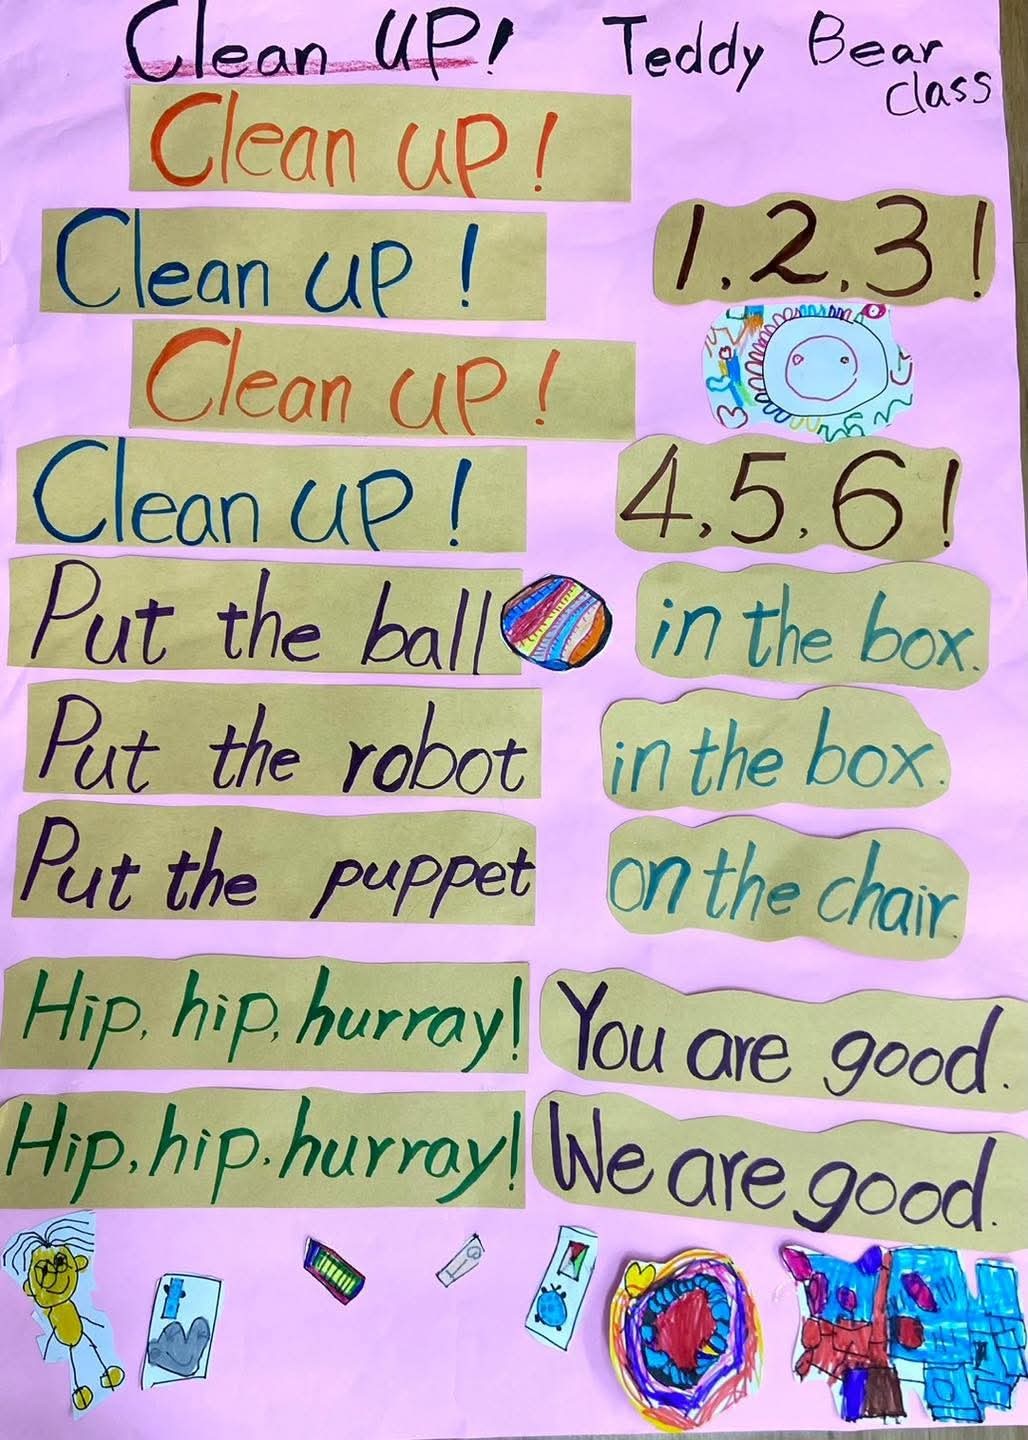 Clean UP! Teddy Bear
class
Clean up!
Clean up! 1,2,3!
Clean up!
Clean up! 4,5,6!
Put the ball in the box.
Put the robot in the box.
Put the puppet on the chair.
Hip, hip, hurray! You are good.
Hip, hip, hurray! We are good.